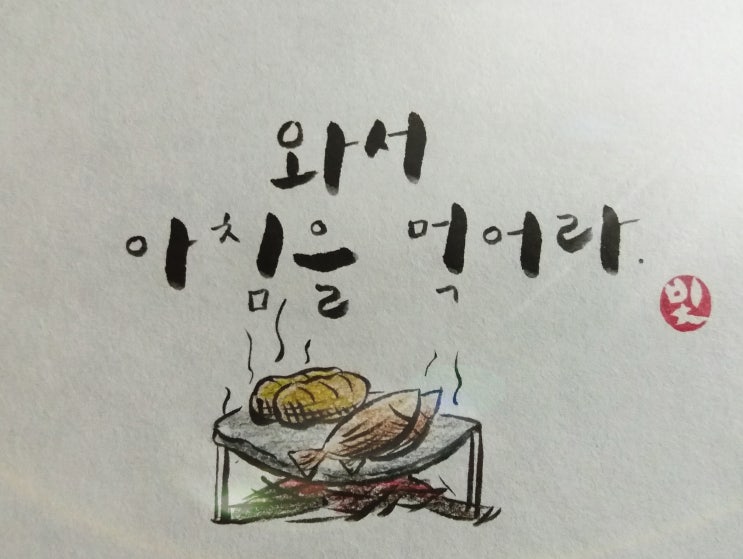 와서
아침을 먹어라.
빛